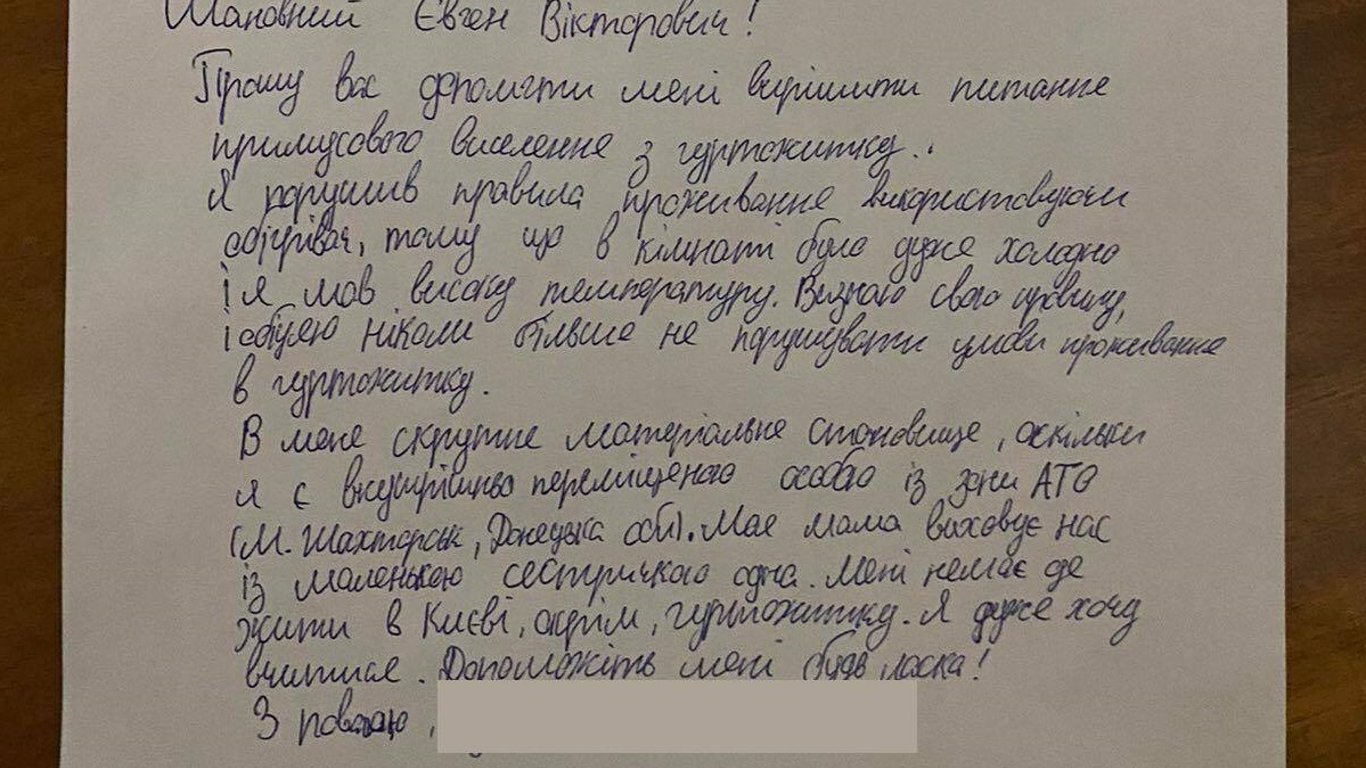 Шановний Євген Вікторович!
Прошу вас допомогти мені вирішити питання
примусового виселення з гуртожитку.
Я порушив правила проживання використовуючи
обігрівач, тому що в кімнаті було дуже холодно
і я мав високу температуру. Визнаю свою провину,
і обіцяю ніколи більше не порушувати умови проживання
в гуртожитку.
В мене скрутне матеріальне становище, оскільки
я є внутрішньо переміщеною особою із зони АТО
(м. Шахтарськ, Донецька обл). Моя мама виховує нас
із маленькою сестричкою одна. Мені немає де
жити в Києві, окрім, гуртожитку. Я дуже хочу
вчитися. Допоможіть мені будь ласка!
З повагою,